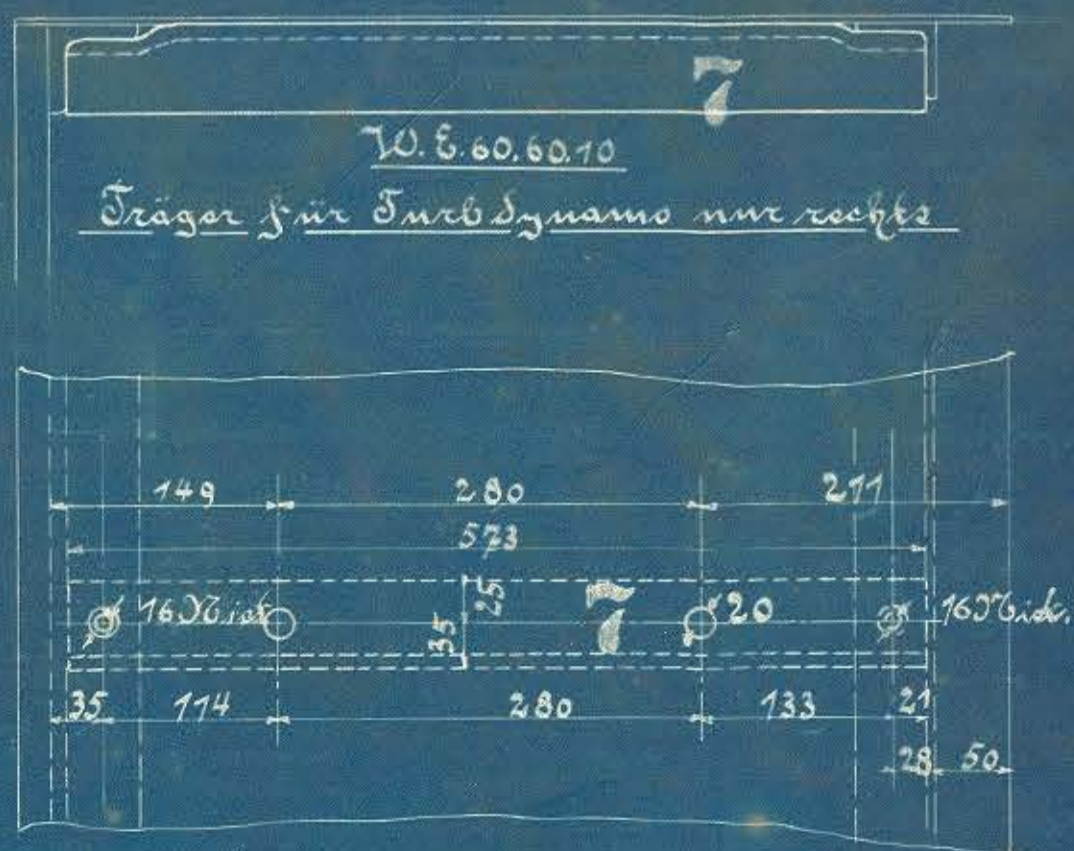 7
W.E.60.60.10
Träger für Turbdynamo nur rechts
149 280 211
573
16 Niet. 25 35 7 20 16 Niet.
35 114 280 133 21
28 50